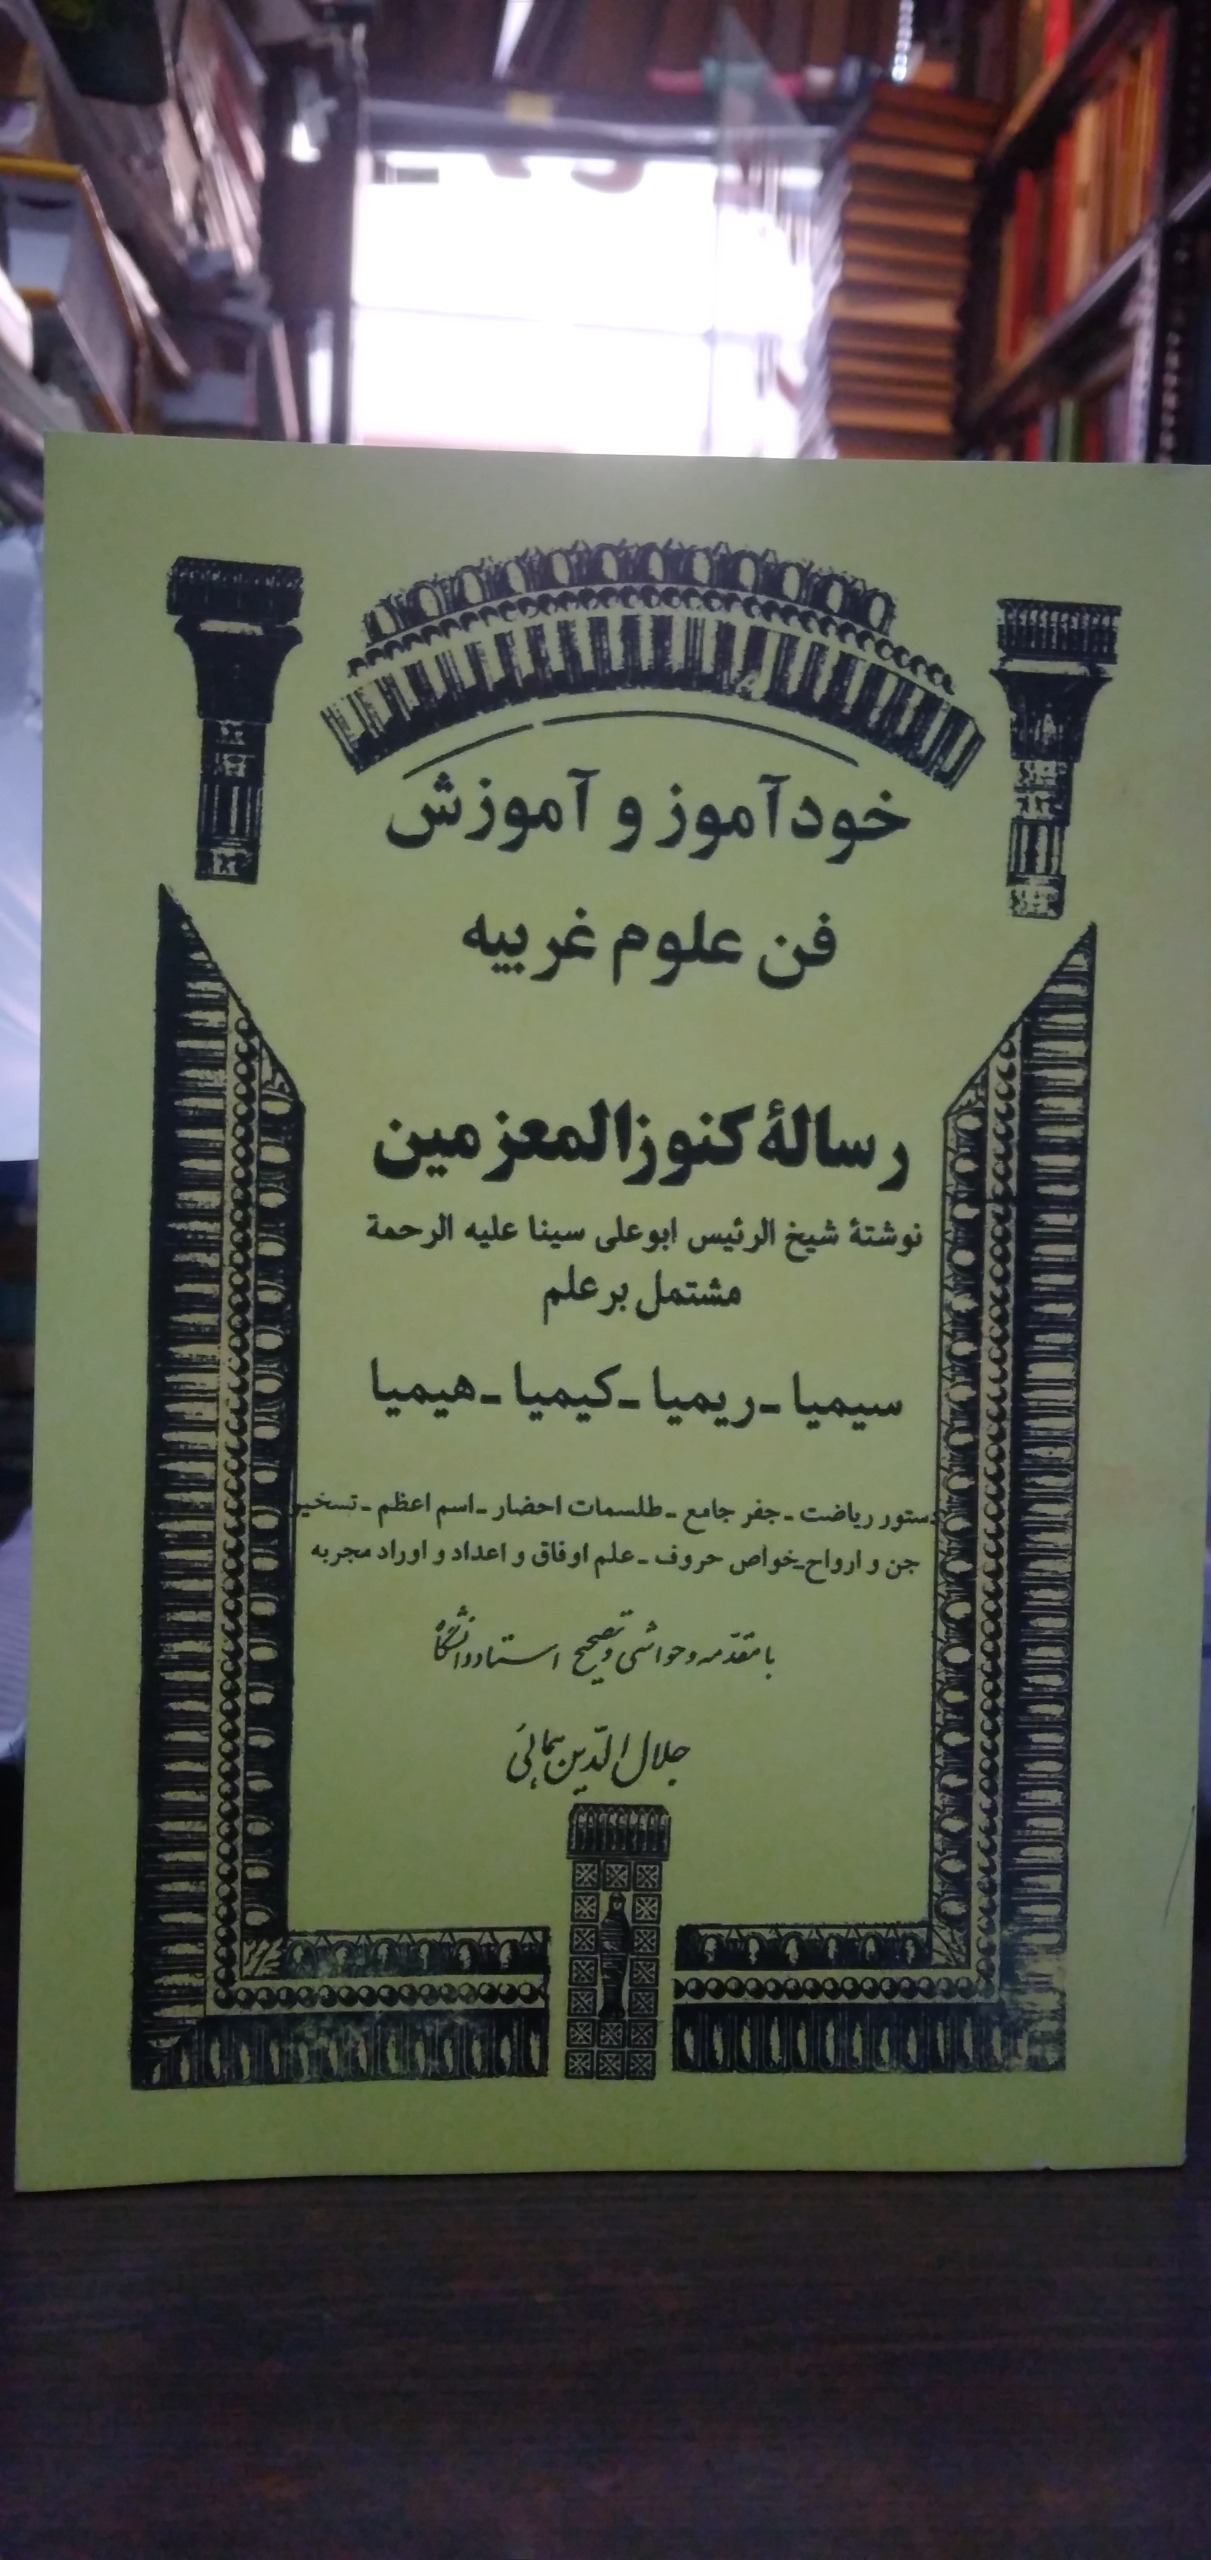 خودآموز و آموزش
فن علوم غریبه
رسالهٔ کنوزالمعزمین
نوشتهٔ شیخ الرئیس ابوعلی سینا علیه الرحمة
مشتمل بر علم
سیمیا ـ ریمیا ـ کیمیا ـ هیمیا
دستور ریاضت ـ جفر جامع ـ طلسمات احضار ـ اسم اعظم ـ تسخیر
جن و ارواح ـ خواص حروف ـ علم اوفاق و اعداد و اوراد مجربه
با مقدّمه و حواشی و تصحیح استاد دانشگاه
جلال الدّین همائی